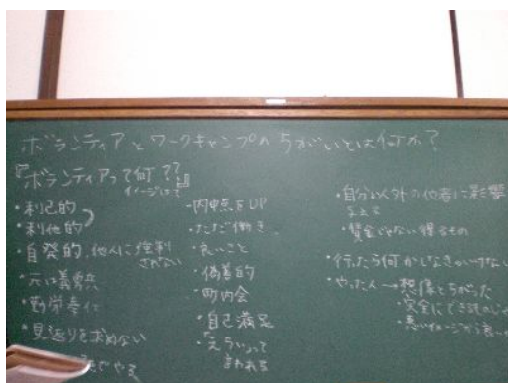 ボランティアとワークキャンプのちがいとは何か?
『ボランティアって何??』
イメージは?
・利己的
・利他的
・自発的、他人に強制
されない
・元は義勇兵
・勤労奉仕
・見返りを求めない
でやる
・内申点をUP
・ただ働き
・良いこと
・偽善的
・町内会
・自己満足
・「えらい」って
言われる
・自分以外の他者に影響
与える
・賃金じゃない得るもの
・行ったら何かしなきゃいけない
・やった人→想像とちがった